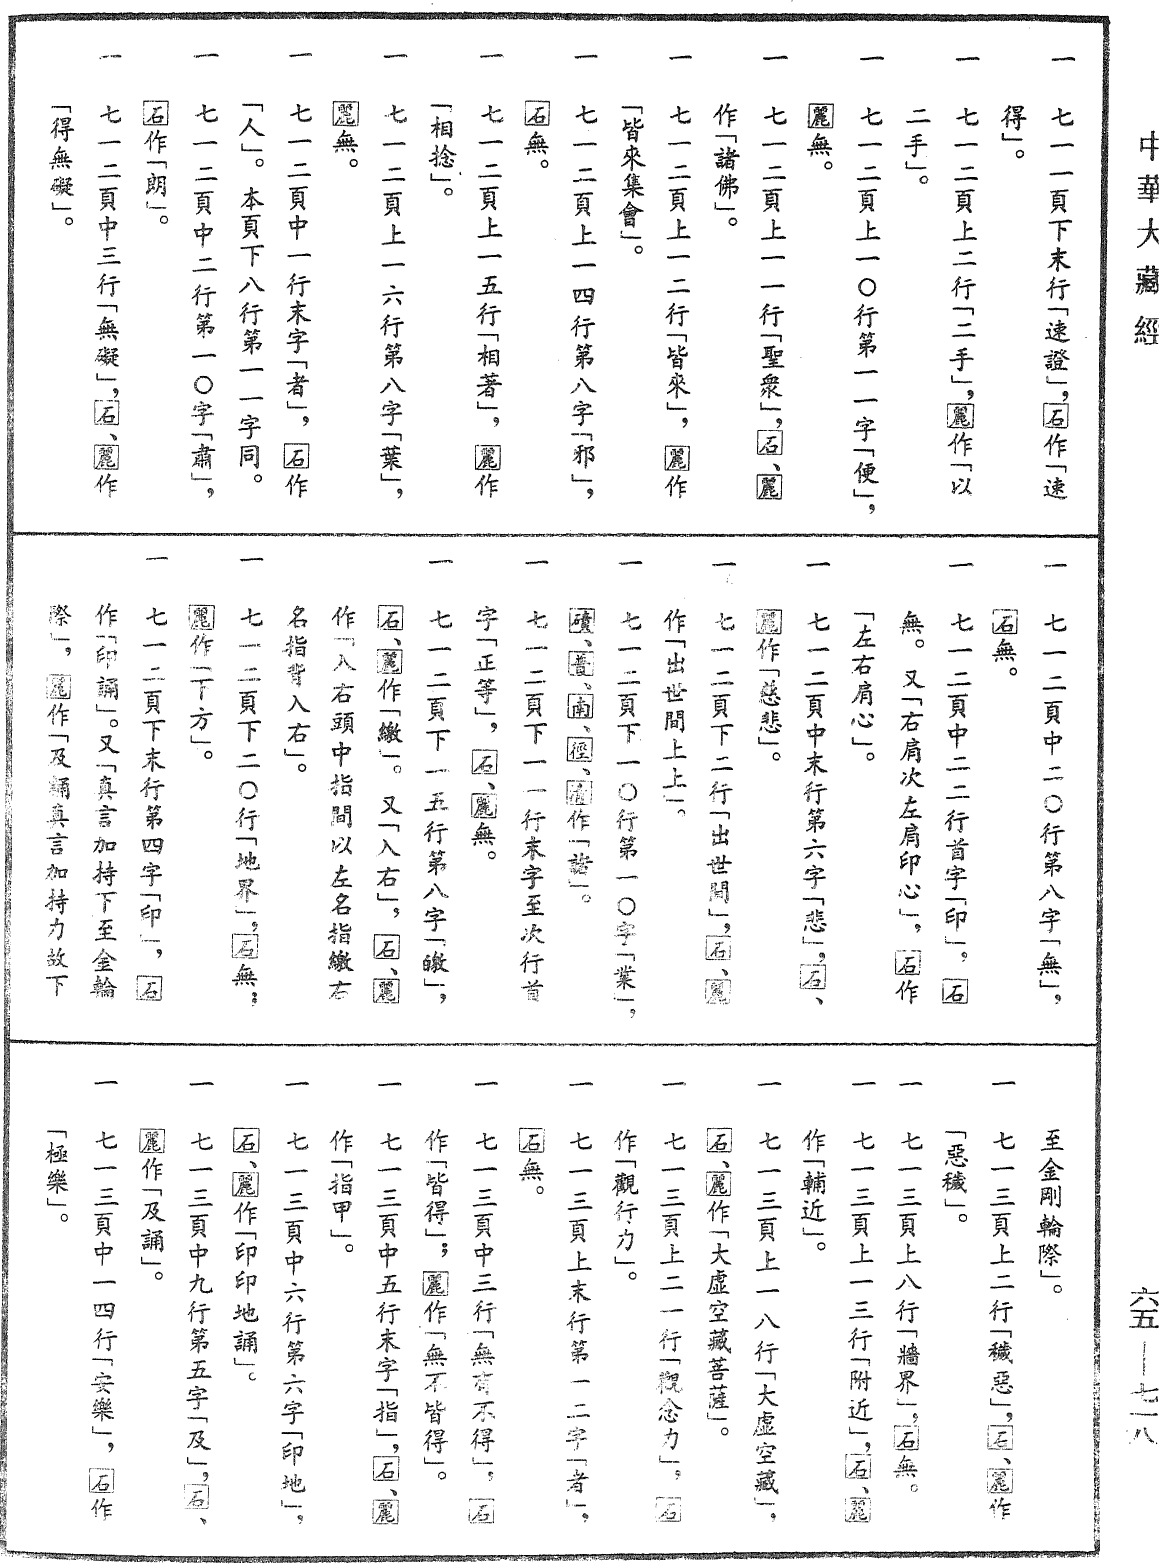 中華大藏經
一 七一一頁下末行「速證」，石作「速
得」。
一 七一二頁上二行「二手」，麗作「以
二手」。
一 七一二頁上一〇行第一一字「便」，
麗無。
一 七一二頁上一一行「聖衆」，石、麗
作「諸佛」。
一 七一二頁上一二行「皆來」，麗作
「皆來集會」。
一 七一二頁上一四行第八字「邪」，
石無。
一 七一二頁上一五行「相著」，麗作
「相捻」。
一 七一二頁上一六行第八字「葉」，
麗無。
一 七一二頁中一行末字「者」，石作
「人」。本頁下八行第一一字同。
一 七一二頁中二行第一〇字「肅」，
石作「朗」。
一 七一二頁中三行「無礙」，石、麗作
「得無礙」。
一 七一二頁中二〇行第八字「無」，
石無。
一 七一二頁中二二行首字「印」，石
無。又「右肩次左肩印心」，石作
「左右肩心」。
一 七一二頁中末行第六字「悲」，石、
麗作「慈悲」。
一 七一二頁下二行「出世間」，石、麗
作「出世間上上」。
一 七一二頁下一〇行第一〇字「業」，
磧、普、南、徑、清作「諸」。
一 七一二頁下一一行末字至次行首
字「正等」，石、麗無。
一 七一二頁下一五行第八字「皦」，
石、麗作「繳」。又「入右」，石、麗
作「入右頭中指間以左名指繳右
名指背入右」。
一 七一二頁下二〇行「地界」，石無；
麗作「下方」。
一 七一二頁下末行第四字「印」，石
作「印誦」。又「真言加持下至金輪
際」，麗作「及誦真言加持力故下
至金剛輪際」。
一 七一三頁上二行「穢惡」，石、麗作
「惡穢」。
一 七一三頁上八行「牆界」，石無。
一 七一三頁上一三行「附近」，石、麗
作「輔近」。
一 七一三頁上一八行「大虛空藏」，
石、麗作「大虛空藏菩薩」。
一 七一三頁上二一行「觀念力」，石
作「觀行力」。
一 七一三頁上末行第一二字「者」，
石無。
一 七一三頁中三行「無有不得」，石
作「皆得」；麗作「無不皆得」。
一 七一三頁中五行末字「指」，石、麗
作「指甲」。
一 七一三頁中六行第六字「印地」，
石、麗作「印印地誦」。
一 七一三頁中九行第五字「及」，石、
麗作「及誦」。
一 七一三頁中一四行「安樂」，石作
「極樂」。
六五——七一八